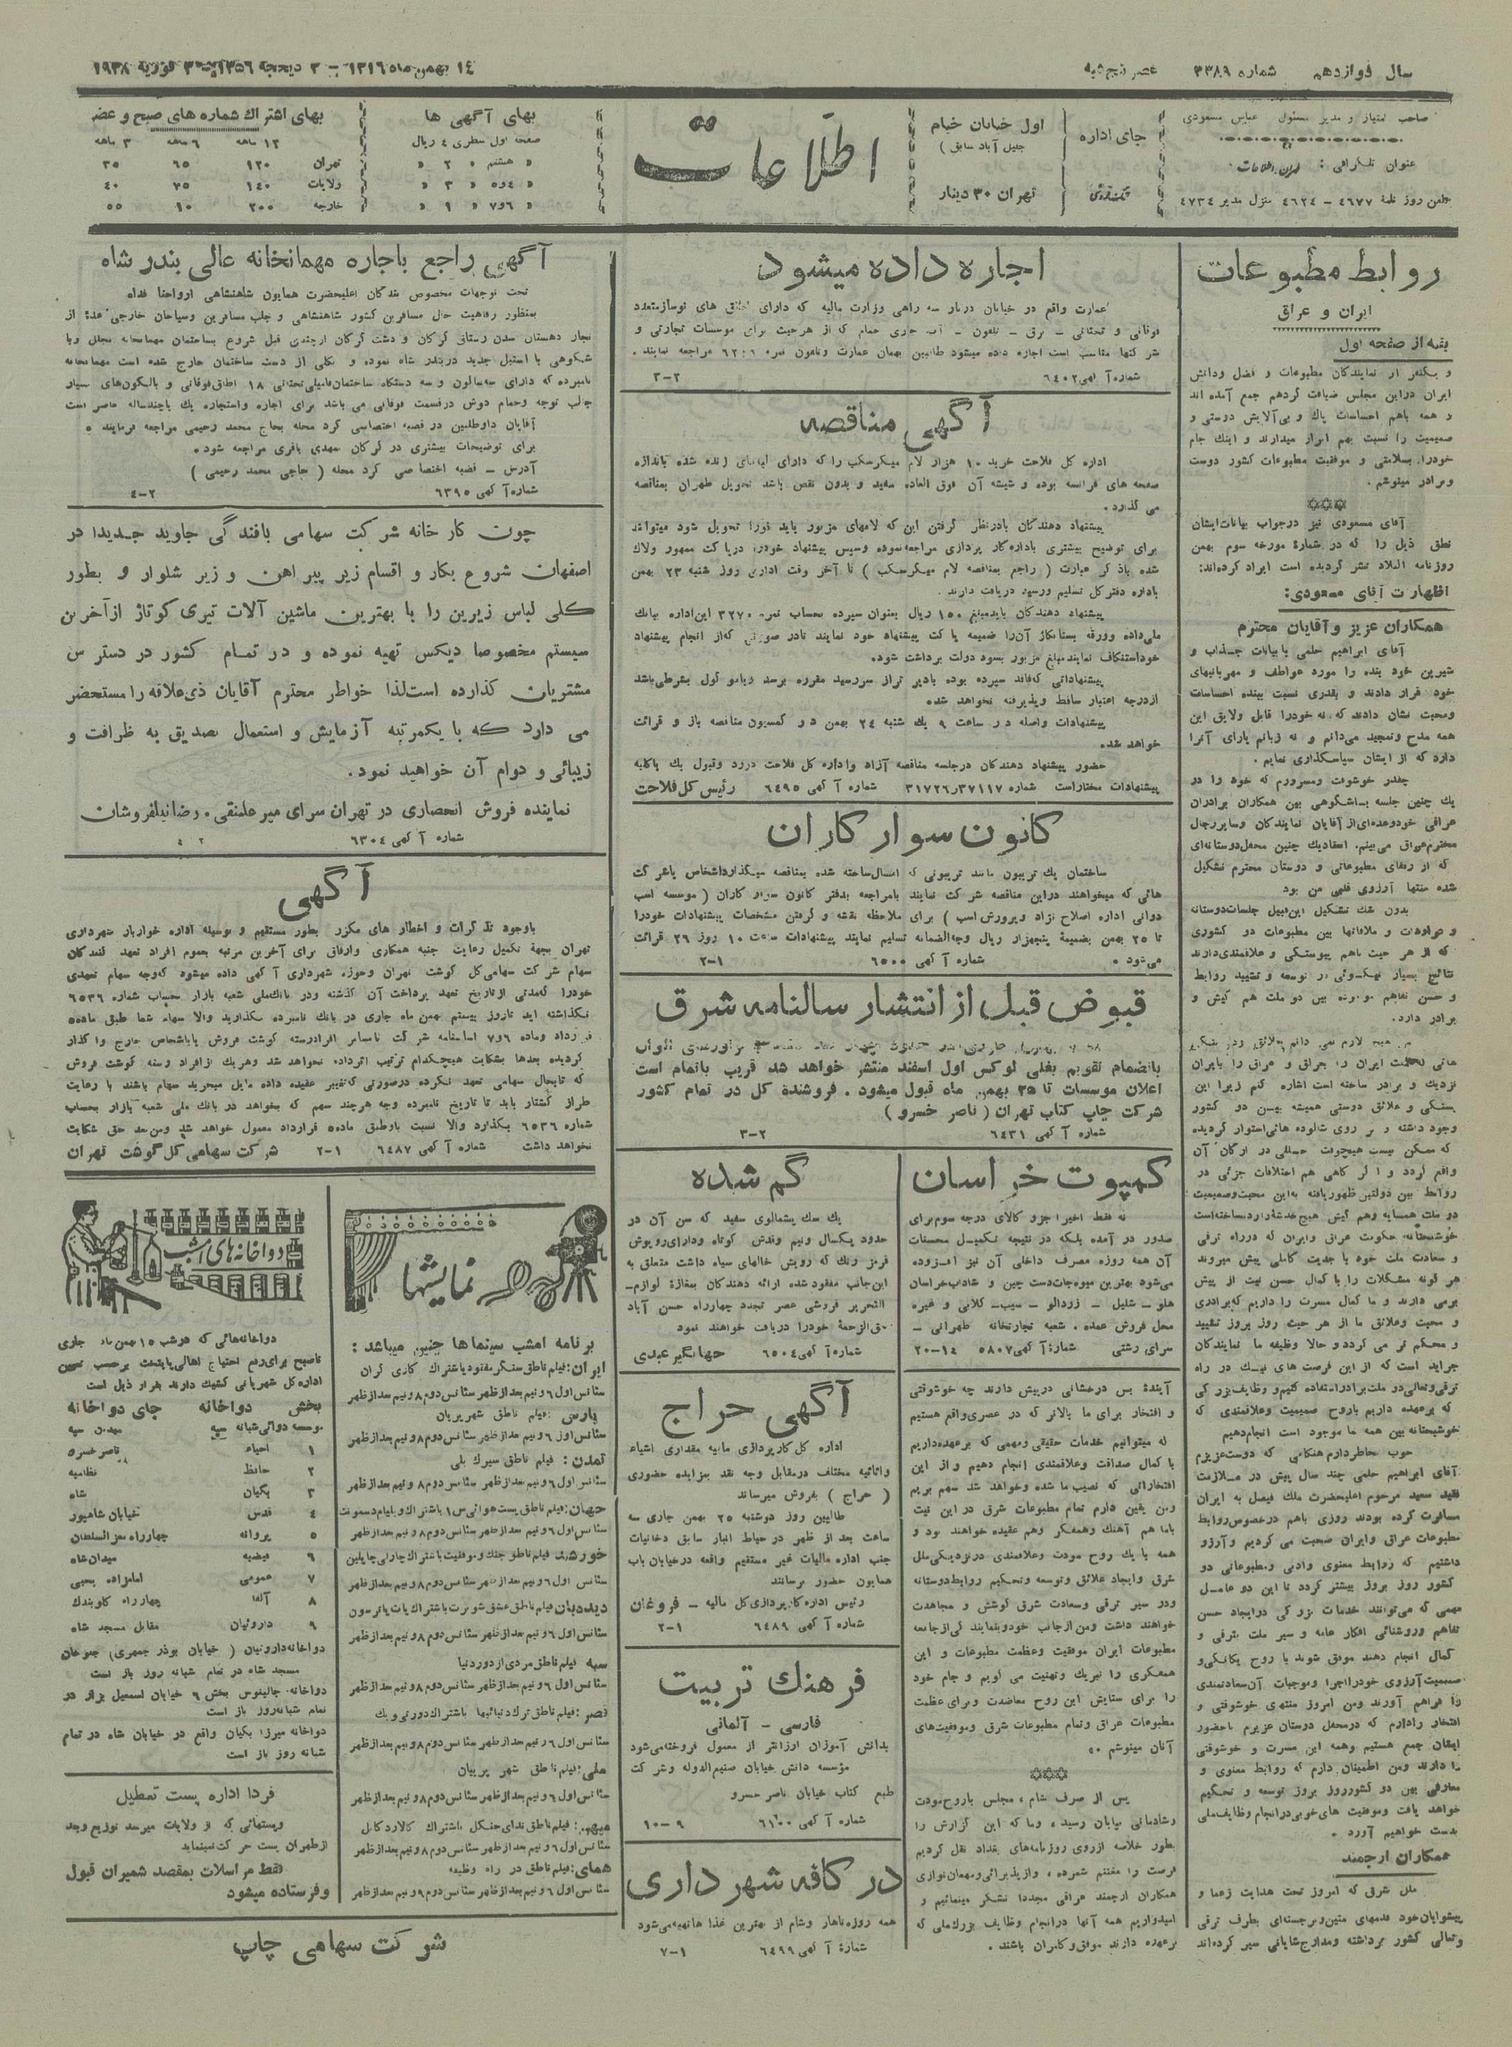 سال دوازدهم شماره ۳۳۸۹ عصر پنجشنبه
۱۴ بهمن ماه ۱۳۱۶ ۲ ذیحجه ۱۳۵۶ ۳ فوریه ۱۹۳۸
صاحب امتیاز و مدیر مسئول عباس مسعودی
عنوان تلگرافی: تهران اطلاعات
تلفن روزنامه ۴۶۷۷ - ۴۶۲۴ منزل مدیر ۴۷۳۴
جای اداره
اول خیابان خیام
جلیل آباد سابق )
تکشماره
تهران ۳۰ دینار
اطلاعات
بهای آگهی ها
صفحه اول سطری ۴ ریال
« هشتم « ۲ «
« ۴و۵ « ۳ «
« ۶و۷ « ۱ «
بهای اشتراك شماره های صبح و عصر
۱۲ ماهه ۶ ماهه ۳ ماهه
تهران ۱۲۰ ۶۵ ۳۵
ولایات ۱۴۰ ۷۵ ۴۰
خارجه ۲۰۰ ۱۰ ۵۵
روابط مطبوعات
ایران و عراق
بقیه از صفحه اول
و یکنفر از نمایندگان مطبوعات و فضل ودانش
ایران دراین مجلس ضیافت گردهم جمع آمده اند
و همه باهم احساسات پاك و بی‌آلایش درستی و
صمیمیت را نسبت بهم ابراز میدارند و اینك جام
خودرا بسلامتی و موفقیت مطبوعات کشور دوست
وبرادر مینوشم.
آقای مسعودی نیز درجواب بیانات ایشان
نطق ذیل را که در شمارهٔ مورخه سوم بهمن
روزنامه البلاد نشر گردیده است ایراد کرده‌اند:
اظهارت آقای مسعودی:
همکاران عزیز و آقایان محترم
آقای ابراهیم حلمی با بیانات جذاب و
شیرین خود بنده را مورد عواطف و مهربانیهای
خود قرار دادند و بقدری نسبت ببنده احساسات
ومحبت نشان دادند که نه خودرا قابل ولایق این
همه مدح وتمجید می‌دانم و نه زبانم یارای آنرا
دارد که از ایشان سپاسگذاری نمایم.
چقدر خوشوقت ومسرورم که خود را در
یك چنین جلسه باشکوهی بین همکاران برادران
عراقی خودوعده‌ای از آقایان نمایندگان وسایر رجال
محترم عراق می‌بینم. انعقاد یك چنین محفل دوستانه‌ای
که از رفقای مطبوعاتی و دوستان محترم تشکیل
شده منتها آرزوی قلبی من بود
بدون شك تشکیل این قبیل جلسات دوستانه
و مراودات و ملاقاتها بین مطبوعات دو کشوری
که از هر حیث باهم پیوستگی و علاقمندی دارند
نتایج بسیار نیکوئی در توسعه و تشیید روابط
و حسن تفاهم موجوده بین دو ملت هم کیش و
برادر دارد.
نزدیك و برادر ساخته است اشاره کنم زیرا این
بستگی و علائق دوستی همیشه بین دو کشور
وجود داشته و بر روی شالوده هائی استوار گردیده
که ممکن نیست هیچوقت خللی در ارکان آن
واقع گردد و اگر گاهی هم اختلافات جزئی در
روابط بین دولتین ظهور یافته به این محبت وصمیمیت
دو ملت همسایه وهم کیش هیچ خدشهٔ وارد نساخته است
خوشبختانه حکومت عراق وایران که درراه ترقی
و سعادت ملت خود با جدیت کاملی پیش میروند
هر گونه مشکلات را با کمال حسن نیت از پیش
برمی دارند و ما کمال مسرت را داریم که برادری
و محبت وعلائق ما از هر حیث روز بروز تشیید
و محکم تر می گردد و حالا وظیفه ما نمایندگان
جراید است که از این فرصت های نیك در راه
ترقی وتعالی دو ملت برادر استفاده کنیم و وظایف بزرگی
که برعهده داریم باروح صمیمیت وعلاقمندی که
خوشبختانه بین همه ما موجود است انجام دهیم
خوب خاطر دارم هنگامی که دوست عزیزم
آقای ابراهیم حلمی چند سال پیش در ملازمت
فقید سعید مرحوم اعلیحضرت ملك فیصل به ایران
مسافرت کرده بودند روزی باهم درخصوص روابط
مطبوعات عراق وایران صحبت می کردیم و آرزو
داشتیم که روابط معنوی وادبی ومطبوعاتی دو
کشور روز بروز بیشتر گردد تا این دو عامل
مهمی که می‌توانند خدمات بزرگی درایجاد حسن
تفاهم وروشنائی افکار عامه و سیر ملت شرقی و
کمال انجام دهند موفق شوند با روح یگانگی و
صمیمیت آرزوی خودرا اجرا وموجبات آن سعادتمندی
را فراهم آورند ومن امروز منتهی خوشوقتی و
افتخار رادارم که درمحفل دوستان عزیزم باحضور
ایشان جمع هستیم وهمه این مسرت و خوشوقتی
را دارند ومن اطمینان دارم که روابط معنوی و
معارفی بین دو کشور روز بروز توسعه و تحکیم
خواهد یافت وموفقیت های خوبی درانجام وظایف ملی
بدست خواهیم آورد.
همکاران ارجمند
ملل شرقی که امروز تحت هدایت زعما و
پیشوایان خود قدمهای متین وبرجسته‌ای بطرف ترقی
وتعالی کشور برداشته ومدارج شایانی سیر کرده‌اند
آیندهٔ بس درخشانی درپیش دارند چه خوشوقتی
و افتخار برای ما بالاتر که در عصری واقع هستیم
که میتوانیم خدمات حقیقی ومهمی که برعهده داریم
با کمال صداقت وعلاقمندی انجام دهیم و از این
افتخاراتی که نصیب ما شده وخواهد شد سهم بریم
ومن یقین دارم تمام مطبوعات شرق در این نیت
باما هم آهنگ وهمفکر وهم عقیده خواهند بود و
همه با یك روح مودت وعلاقمندی درنزدیکی ملل
شرق وایجاد علائق وتوسعه وتحکیم روابط دوستانه
ودر سیر ترقی وسعادت شرق کوشش و مجاهدت
خواهند داشت ومن ازجانب خود وبنمایندگی ازجامعه
مطبوعات ایران موفقیت وعظمت مطبوعات و این
همفکری را تبریك وتهنیت می گویم و جام خود
را برای ستایش این روح معاضدت وبرای عظمت
مطبوعات عراق وتمام مطبوعات شرق وموفقیت‌های
آنان مینوشم.
پس از صرف شام، مجلس باروح مودت
وشادمانی بپایان رسید، وما که این گزارش را
بطور خلاصه ازروی روزنامه‌های بغداد نقل کردیم
فرصت را مغتنم شمرده، وازپذیرائی ومهمان نوازی
همکاران ارجمند عراقی مجددا تشکر مینمائیم و
امیدواریم همه آنها درانجام وظایف بزرك ملی که
برعهده دارند موفق وکامران باشند.
اجاره داده میشود
عمارت واقع در خیابان دربار سه راهی وزارت مالیه که دارای اطاق های نوساز متعدد
فوقانی و تحتانی - برق - تلفون - آب جاری حمام که از هر حیث برای موسسات تجارتی و
شرکتها مناسب است اجاره داده میشود طالبین بهمان عمارت وتلفون نمره مراجعه نمایند.
شماره آگهی ۶۴۰۲ ۳-۲
آگهی مناقصه
اداره کل فلاحت خرید ۱۰ هزار لام میکرسکپ را که دارای لبه‌های زده شده باندازه
صفحه های فرانسه بوده و شیشه آن فوق العاده سفید و بدون نقص باشد تحویل طهران بمناقصه
می گذارد.
پیشنهاد دهندگان بادرنظر گرفتن این که لامهای مزبور باید فورا تحویل شود میتوانند
برای توضیح بیشتری باداره کار پردازی مراجعه نموده وسپس پیشنهاد خودرا درپاکت ممهور ولاك
شده باذکر عبارت ( راجع بمناقصه لام میکرسکپ ) تا آخر وقت اداری روز شنبه ۲۳ بهمن
باداره دفتر کل تسلیم ورسید دریافت دارند.
پیشنهاد دهندگان بایدمبلغ ۱۵۰ ریال بعنوان سپرده بحساب نمره ۳۲۷۰ این اداره ببانك
ملی داده وورقه بستانکار آن را ضمیمه پاکت پیشنهاد خود نمایند تادر صورتی که از انجام پیشنهاد
خوداستنکاف نمایند مبلغ مزبور بسود دولت برداشت شود.
پیشنهاداتی که فاقد سپرده بوده یادیر تراز سررسید مقرره برسد ویامو کول بشرطی باشد
ازدرجه اعتبار ساقط وپذیرفته نخواهد شد.
پیشنهادات واصله در ساعت ۹ یك شنبه ۲۴ بهمن در کمسیون مناقصه باز و قرائت
خواهد شد.
حضور پیشنهاد دهندگان درجلسه مناقصه آزاد واداره کل فلاحت دررد وقبول یك یاکلیه
پیشنهادات مختاراست شماره ۳۱۷۲۶ر۳۷۱۱۷ شماره آگهی ۶۴۹۵ رئیس کل فلاحت
کانون سوار کاران
ساختمان یك تریبون مانند تریبونی که امسال ساخته شده بمناقصه میگذارد اشخاص یاشرکت
هائی که میخواهند دراین مناقصه شرکت نمایند بامراجعه بدفتر کانون سوار کاران ( موسسه اسب
دوانی اداره اصلاح نژاد وپرورش اسب ) برای ملاحظه نقشه و گرفتن مشخصات پیشنهادات خودرا
تا ۲۵ بهمن بضمیمهٔ پنجهزار ریال وجه‌الضمانه تسلیم نمایند پیشنهادات ساعت ۱۰ روز ۲۶ قرائت
میشود. شماره آگهی ۶۵۰۰ ۲-۱
قبوض قبل از انتشار سالنامه شرق
بانضمام تقویم بغلی لوکس اول اسفند منتشر خواهد شد قریب باتمام است
اعلان موسسات تا ۲۵ بهمن ماه قبول میشود. فروشنده کل در تمام کشور
شرکت چاپ کتاب تهران ( ناصر خسرو )
شماره آگهی ۶۴۳۱ ۳-۲
کمپوت خراسان
نه فقط اخیرا جزو کالای درجه سوم برای
صدور در آمده بلکه در نتیجه تکمیل محسنات
آن همه روزه مصرف داخلی آن نیز افزوده
می‌شود بهترین میوه‌جات دست چین و شاداب خراسان
هلو - شلیل - زردالو - سیب - گلابی و غیره
محل فروش عمده. شعبه تجارتخانه طهرانی -
سرای رشتی شمارهٔ آگهی ۵۸۰۷ ۲۰-۱۴
گم شده
یك سك پشمالوی سفید که سن آن در
حدود یکسال ونیم وقدش کوتاه ودارای روپوش
قرمز رنك که رویش خالهای سیاه داشت متعلق به
این‌جانب مفقود شده ارائه دهندگان بمغازهٔ لوازم
التحریر فروشی عصر تجدد چهارراه حسن آباد
حق‌الزحمهٔ خودرا دریافت خواهند نمود
شماره آگهی ۶۵۰۴ جهانگیر عبدی
آگهی حراج
اداره کل کارپردازی مالیه مقداری اشیاء
واثاثیه مختلف درمقابل وجه نقد بمزایده حضوری
( حراج ) بفروش میرساند
طالبین روز دوشنبه ۲۵ بهمن جاری سه
ساعت بعد از ظهر در حیاط انبار سابق دخانیات
جنب اداره مالیات غیر مستقیم واقعه درخیابان باب
همایون حضور برسانند
رئیس اداره کارپردازی کل مالیه - فروغان
شماره آگهی ۶۴۸۹ ۲-۱
فرهنك تربیت
فارسی - آلمانی
بدانش آموزان ارزانتر از معمول فروخته می‌شود
مؤسسه دانش خیابان صنیع الدوله وشرکت
طبع کتاب خیابان ناصرخسرو
شماره آگهی ۶۱۰۰ ۱۰-۹
در کافه شهرداری
همه روزه ناهار وشام از بهترین غذا ها تهیه می‌شود
شمارهٔ آگهی ۶۴۹۹ ۷-۱
آگهی راجع باجاره مهمانخانه عالی بندر شاه
تحت توجهات مخصوص بندگان اعلیحضرت همایون شاهنشاهی ارواحنا فداه
بمنظور رفاهیت حال مسافرین کشور شاهنشاهی و جلب مسافرین وسیاحان خارجی عدهٔ از
تجار دهستان تمدن رستاق گرگان و دشت گرگان ارجمندی قبل شروع بساختمان مهمانخانه مجلل وبا
شکوهی با استیل جدید دربندر شاه نموده و بکلی از دست ساختمان خارج شده است مهمانخانه
نامبرده که دارای سه سالون و سه دستگاه ساختمان فامیلی تحتانی ۱۸ اطاق فوقانی و بالکون‌های بسیار
جالب توجه وحمام دوش درقسمت فوقانی می باشد برای اجاره واستجاره یك یاچندساله حاضر است
آقایان داوطلبین در قصبه اختصاصی کرد محله بحاج محمد رحیمی مراجعه فرمایند.
برای توضیحات بیشتری در گرگان مهدی باقری مراجعه شود.
آدرس - قصبه اختصاصی کرد محله ( حاجی محمد رحیمی )
شماره آگهی ۶۳۹۵ ۴-۲
چون کارخانه شرکت سهامی بافندگی جاوید جدیدا در
اصفهان شروع بکار و اقسام زیر پیراهن و زیر شلوار و بطور
کلی لباس زیرین را با بهترین ماشین آلات تیری کوتاژ ازآخرین
سیستم مخصوصا دیکس تهیه نموده و در تمام کشور در دسترس
مشتریان گذارده است لذا خواطر محترم آقایان ذی‌علاقه را مستحضر
می دارد که با یکمرتبه آزمایش و استعمال تصدیق به ظرافت و
زیبائی و دوام آن خواهید نمود.
نماینده فروش انحصاری در تهران سرای میر علینقی. رضا نیلفروشان
شماره آگهی ۶۳۰۴
آگهی
باوجود تذکرات و اخطار های مکرر بطور مستقیم و بوسیله اداره خواربار شهرداری
تهران بجهة تکمیل رعایت جنبه همکاری وارفاق برای آخرین مرتبه بعموم افراد تعهد کنندگان
سهام شرکت سهامی کل گوشت تهران وحوزه شهرداری آگهی داده میشود که وجه سهام تعهدی
خودرا که مدتی ازتاریخ تعهد پرداخت آن گذشته ودر بانك ملی شعبه بازار بحساب شماره ۶۵۳۶
نگذاشته اید تاروز بیستم بهمن ماه جاری در بانك نامبرده بگذارید والا سهام شما طبق ماده۵
قرارداد وماده ۶و۷ اساسنامه شرکت بسایر افراددسته گوشت فروش یاباشخاص خارج واگذار
گردیده بعدها بشکایت هیچکدام ترتیب اثرداده نخواهد شد وهریك از افراد دسته گوشت فروش
که تابحال سهامی تعهد نکرده درصورتی که تغییر عقیده داده مایل بخرید سهام باشند با رعایت
طراز کشتار باید تا تاریخ نامبرده وجه هرچند سهم که بخواهد در بانك ملی شعبه بازار بحساب
شماره ۶۵۳۶ بگذارد والا نسبت باوطبق ماده۵ قرارداد معمول خواهد شد ومن‌بعد حق شکایت
نخواهد داشت شماره آگهی ۶۴۸۷ ۲-۱ شرکت سهامی کل گوشت تهران
نمایشها
برنامه امشب سینماها چنین میباشد:
ایران: فیلم ناطق سنگر مفقود باشتراك کاری گران
سئانس اول ۶ونیم بعدازظهر سئانس دوم ۸ونیم بعدازظهر
پارس: فیلم ناطق شهر پریان
سئانس اول ۶ونیم بعدازظهر سئانس دوم ۸ونیم بعدازظهر
تمدن: فیلم ناطق سیرك بلی
سئانس اول ۶ونیم بعدازظهر سئانس دوم ۸ونیم بعدازظهر
جهان: فیلم ناطق پست هوائی س۱ باشتراك ویلیام دسموند
سئانس اول ۶ونیم بعدازظهر سئانس دوم ۸ونیم بعدازظهر
خورشید فیلم ناطق جنك وموفقیت باشتراك چارلی چاپلین
سئانس اول ۶ونیم بعدازظهر سئانس دوم ۸ونیم بعدازظهر
دیده‌بان فیلم ناطق عشق شوبرت باشتراك پات پاترسون
سئانس اول ۶ونیم بعدازظهر سئانس دوم ۸ونیم بعدازظهر
سپه فیلم ناطق مردی از دوردنیا
سئانس اول ۶ونیم بعدازظهر سئانس دوم ۸ونیم بعدازظهر
قصر: فیلم ناطق ترك دنیائیها باشتراك دورتی ویك
سئانس اول ۶ونیم بعدازظهر سئانس دوم ۸ونیم بعدازظهر
ملی: فیلم ناطق شهر پریان
سئانس اول ۶ونیم بعدازظهر سئانس دوم ۸ونیم بعدازظهر
میهن: فیلم ناطق ندای جنگل باشتراك کلارک کابل
سئانس اول ۶ونیم بعدازظهر سئانس دوم ۸ونیم بعدازظهر
همای: فیلم ناطق در راه وظیفه
سئانس اول ۶ونیم بعدازظهر سئانس دوم ۸ونیم بعدازظهر
دواخانه‌های امشب
دواخانه‌هائی که هرشب ۱۵ بهمن ماه جاری
تاصبح برای رفع احتیاج اهالی پایتخت برحسب تعیین
اداره کل شهربانی کشیك دارند بقرار ذیل است
بخش دواخانه جای دواخانه
موسسه دوائی شبانه سپه میدان سپه
۱ احیاء ناصرخسرو
۲ حافظ نظامیه
۳ یگیان شاه
۴ قدس خیابان شاهپور
۵ پروانه چهارراه معزالسلطان
۶ فیضیه میدان شاه
۷ عمومی امامزاده یحیی
۸ آلفا چهارراه کلوبندك
۹ داروئیان مقابل مسجد شاه
دواخانه داروئیان ( خیابان بوذرجمهری ) جلوخان
مسجد شاه در تمام شبانه روز باز است
دواخانه جالینوس بخش ۶ خیابان اسمعیل بزاز در
تمام شبانه‌روز باز است
دواخانه میرزا یگیان واقع در خیابان شاه در تمام
شبانه روز باز است
فردا اداره پست تعطیل
وپستهائی که از ولایات میرسد توزیع وبعد
ازطهران پست حرکت نمینماید
فقط مراسلات بمقصد شمیران قبول
وفرستاده میشود
شرکت سهامی چاپ